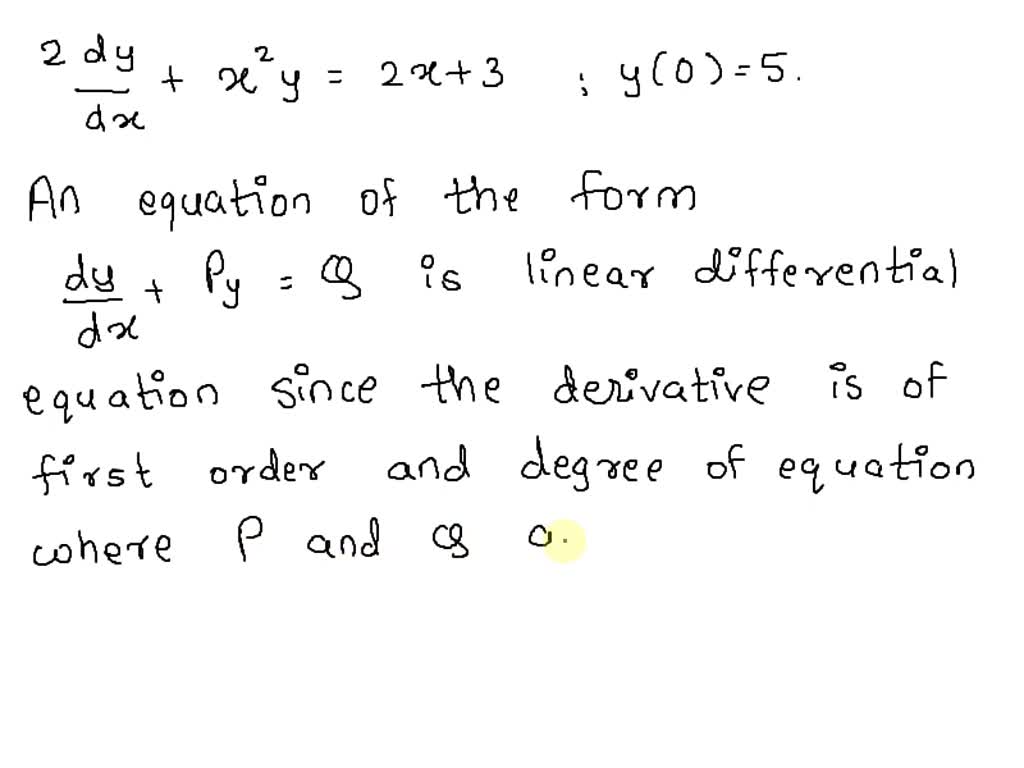 2 dy/dx + x²y = 2x+3 ; y(0)=5.
An equation of the form
dy/dx + Py = Q is linear differential
equation since the derivative is of
first order and degree of equation
where P and Q a